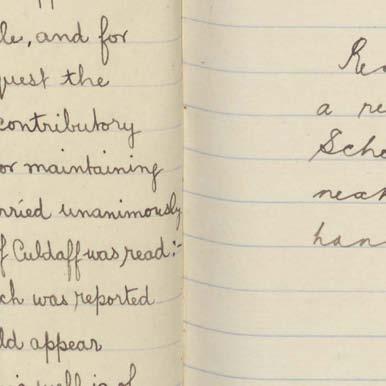 le, and for
quest the
contributory
or maintaining
rried unanimously
f Culdaff was read:-
ch was reported
ld appear
is of
Re
a re
Sche
near
han